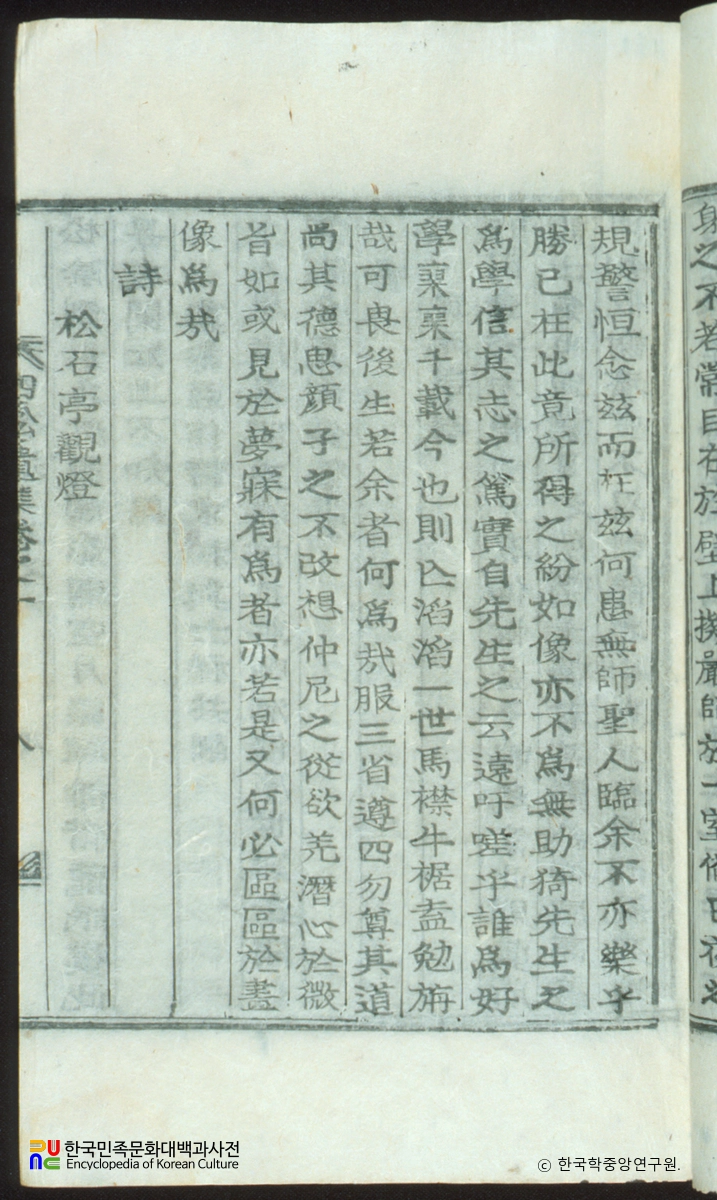 身之不若常目在於壁上摸嚴師於一室脩日夜之
規警恒念玆而在玆何患無師聖人臨余不亦樂乎
勝己在此竟所得之紛如像亦不爲無助猗先生之
爲學信其志之篤實自先生之云遠吁嗟乎誰爲好
學稟稟千載今也則亾滔滔一世馬襟牛裾盍勉旃
哉可畏後生若余者何爲㢤服三省遵四勿尊其道
尚其德思顔子之不改想仲尼之從欲羌潛心於微
旨如或見於夢寐有爲者亦若是又何必區區於畵
像爲㢤
詩
松石亭觀燈
四松遺集卷之一
八
한국민족문화대백과사전
Encyclopedia of Korean Culture
© 한국학중앙연구원.